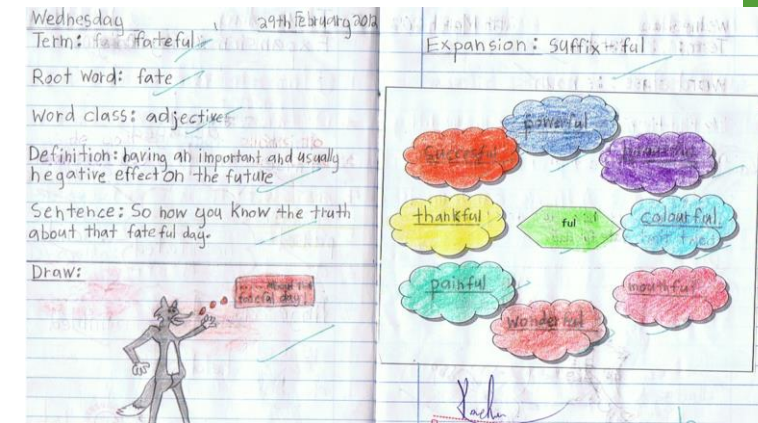 Wednesday
29th February 2012
Term: fateful
Root word: fate
Word class: adjective
Definition: having an important and usually
negative effect on the future
Sentence: So now you know the truth
about that fateful day.
Draw:
About that
fateful day!
Expansion: suffix - ful
powerful
thankful
ful
colourful
painful
mouthful
wonderful